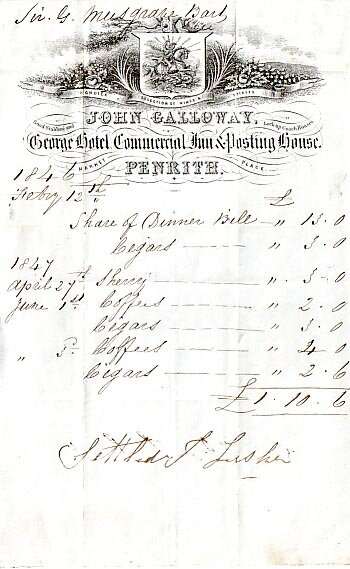 Sir G. Musgrave Bart
A CHOICE SELECTION OF WINES & SPIRITS
JOHN GALLOWAY,
George Hotel Commercial Inn & Posting House.
MARKET PLACE
PENRITH.
1846
Feby 12th £
Share of Dinner Bill — " 15. 0
Cegars — " 3. 0
1847
April 27th Sherry — " 3. 0
June 1st Coffees — " 2. 0
Cegars — " 3. 0
" 3d Coffees — " 4. 0
Cegars — " 2. 6
£1. 10. 6
Settled J